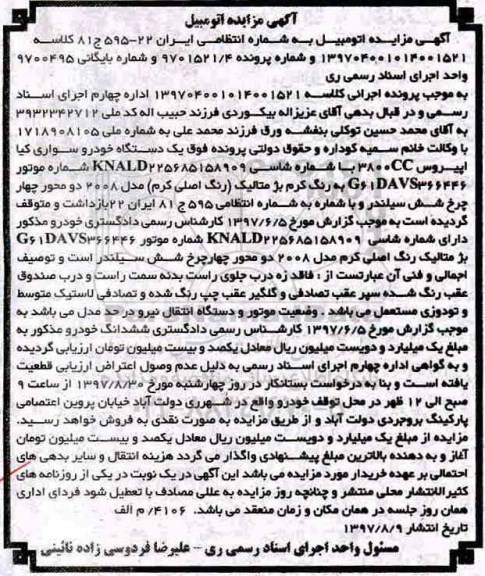 آگهی مزایده اتومبیل
آگهی مزایده اتومبیل به شماره انتظامی ایران ۲۲-۵۹۵ ج۸۱ کلاسه
۱۳۹۷۰۴۰۰۱۰۱۴۰۰۱۵۲۱ و شماره پرونده ۹۷۰۱۵۲۱/۴ و شماره بایگانی ۹۷۰۰۴۹۵
واحد اجرای اسناد رسمی ری
به موجب پرونده اجرائی کلاسه ۱۳۹۷۰۴۰۰۱۰۱۴۰۰۱۵۲۱ اداره چهارم اجرای اسناد
رسمی و در قبال بدهی آقای عزیزاله بیکوردی فرزند حبیب اله کد ملی ۳۹۳۲۳۴۲۷۱۲
به آقای محمد حسین توکلی بنفشه ورق فرزند محمد علی به شماره ملی ۱۷۱۸۹۰۸۱۰۵
با وکالت خانم سمیه کوداره و حقوق دولتی پرونده فوق یک دستگاه خودرو سواری کیا
اپیروس ۳۸۰۰CC با شماره شاسی KNALD۲۲۵۶۸۵۱۵۸۹۰۹ شماره موتور
G۶۱DAVS۳۶۶۴۴۶ به رنگ کرم بژ متالیک (رنگ اصلی کرم) مدل ۲۰۰۸ دو محور چهار
چرخ شش سیلندر و با شماره به شماره انتظامی ۵۹۵ ج ۸۱ ایران ۲۲بازداشت و متوقف
گردیده است به موجب گزارش مورخ ۱۳۹۷/۶/۵ کارشناس رسمی دادگستری خودرو مذکور
دارای شماره شاسی KNALD۲۲۵۶۸۵۱۵۸۹۰۹ شماره موتور G۶۱DAVS۳۶۶۴۴۶
بژ متالیک رنگ اصلی کرم مدل ۲۰۰۸ دو محور چهارچرخ شش سیلندر است و توصیف
اجمالی و فنی آن عبارتست از : فاقد زه درب جلوی راست بدنه سمت راست و درب صندوق
عقب رنگ شده سپر عقب تصادفی و گلگیر عقب چپ رنگ شده و تصادفی لاستیک متوسط
و تودوزی مستعمل می باشد . وضعیت موتور و دستگاه انتقال نیرو درحد مدل می باشد به
موجب گزارش مورخ ۱۳۹۷/۶/۵ کارشناس رسمی دادگستری ششدانگ خودرو مذکور به
مبلغ یک میلیارد و دویست میلیون ریال معادل یکصد و بیست میلیون تومان ارزیابی گردیده
و به گواهی اداره چهارم اجرای اسناد رسمی به دلیل عدم وصول اعتراض ارزیابی قطعیت
یافته است و بنا به درخواست بستانکار در روز چهارشنبه مورخ ۱۳۹۷/۸/۳۰ از ساعت ۹
صبح الی ۱۲ ظهر در محل توقف خودرو واقع در شهرری دولت آباد خیابان پروین اعتصامی
پارکینگ بروجردی دولت آباد و از طریق مزایده به صورت نقدی به فروش خواهد رسید.
مزایده از مبلغ یک میلیارد و دویست میلیون ریال معادل یکصد و بیست میلیون تومان
آغاز و به دهنده بالاترین مبلغ پیشنهادی واگذار می گردد هزینه انتقال و سایر بدهی های
احتمالی بر عهده خریدار مورد مزایده می باشد این آگهی در یک نوبت در یکی از روزنامه های
کثیرالانتشار محلی منتشر و چنانچه روز مزایده به عللی مصادف با تعطیل شود فردای اداری
همان روز جلسه در همان مکان و زمان منعقد می باشد. ۴۱۰۶/ م الف
تاریخ انتشار ۱۳۹۷/۸/۹
مسئول واحد اجرای اسناد رسمی ری - علیرضا فردوسی زاده نائینی